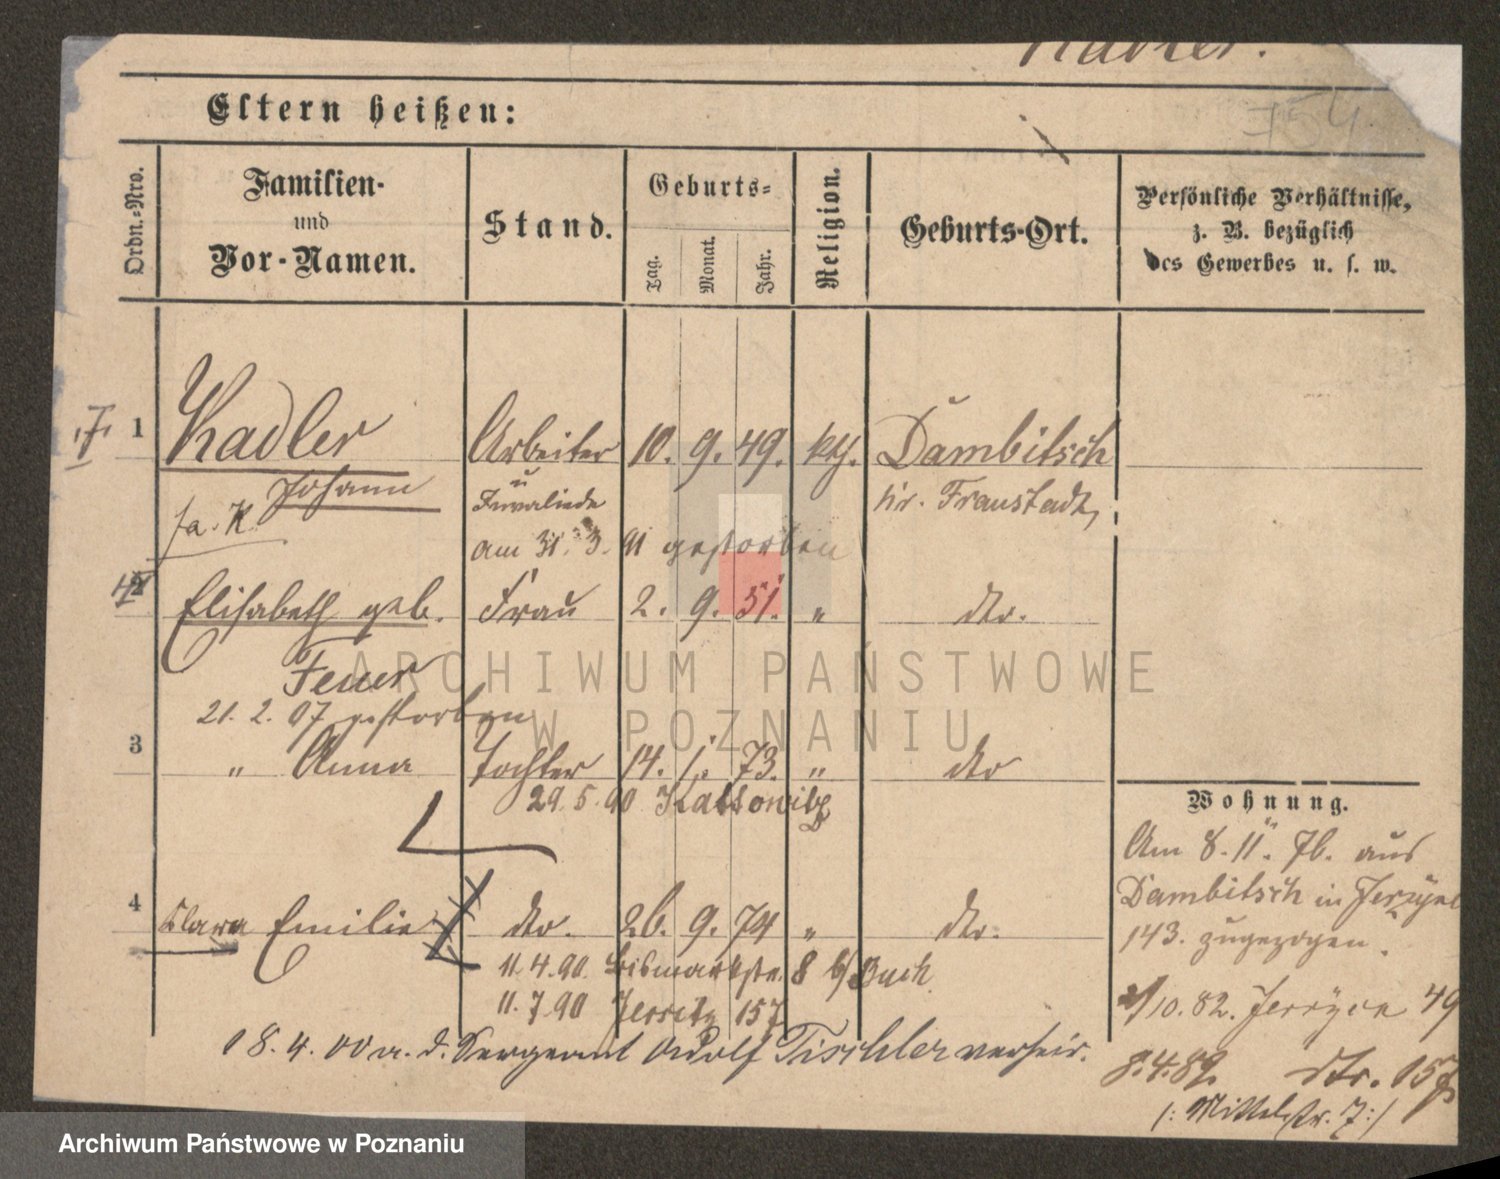 Kadler.
754.
Eltern heißen:
Ordn.=Nro.
Familien-
und
Vor-Namen.
Stand.
Geburts=
Tag.
Monat.
Jahr.
Religion.
Geburts-Ort.
Persönliche Verhältnisse,
z. B. bezüglich
des Gewerbes u. s. w.
1 Kadler Arbeiter 10. 9. 49. kth. Dambitsch
Johann u Invaliede Kr. Fraustadt
fa. K. am 31. 3. 91 gestorben
2 Elisabeth geb. Frau 2. 9. 51. " dto.
Feuer
21. 2. 07 gestorben
3 " Anna Tochter 14. 1. 73. " dto
29. 5. 90 Kattowitz
4 Clara Emilie dto. 26. 9. 74 " dto.
11. 4. 90. Bismarkstr. 8 b/ Buch
11. 7. 90 Jersitz 157
18. 4. 00 a. d. Sergeant Adolf Tischler verheir.
Wohnung.
Am 8. 11. 76. aus
Dambitsch in
143. zugezogen.
10. 82. 49
8. 4. 89. dto. 157
(: Mittelstr. 7 :)
ARCHIWUM PAŃSTWOWE
W POZNANIU
Archiwum Państwowe w Poznaniu